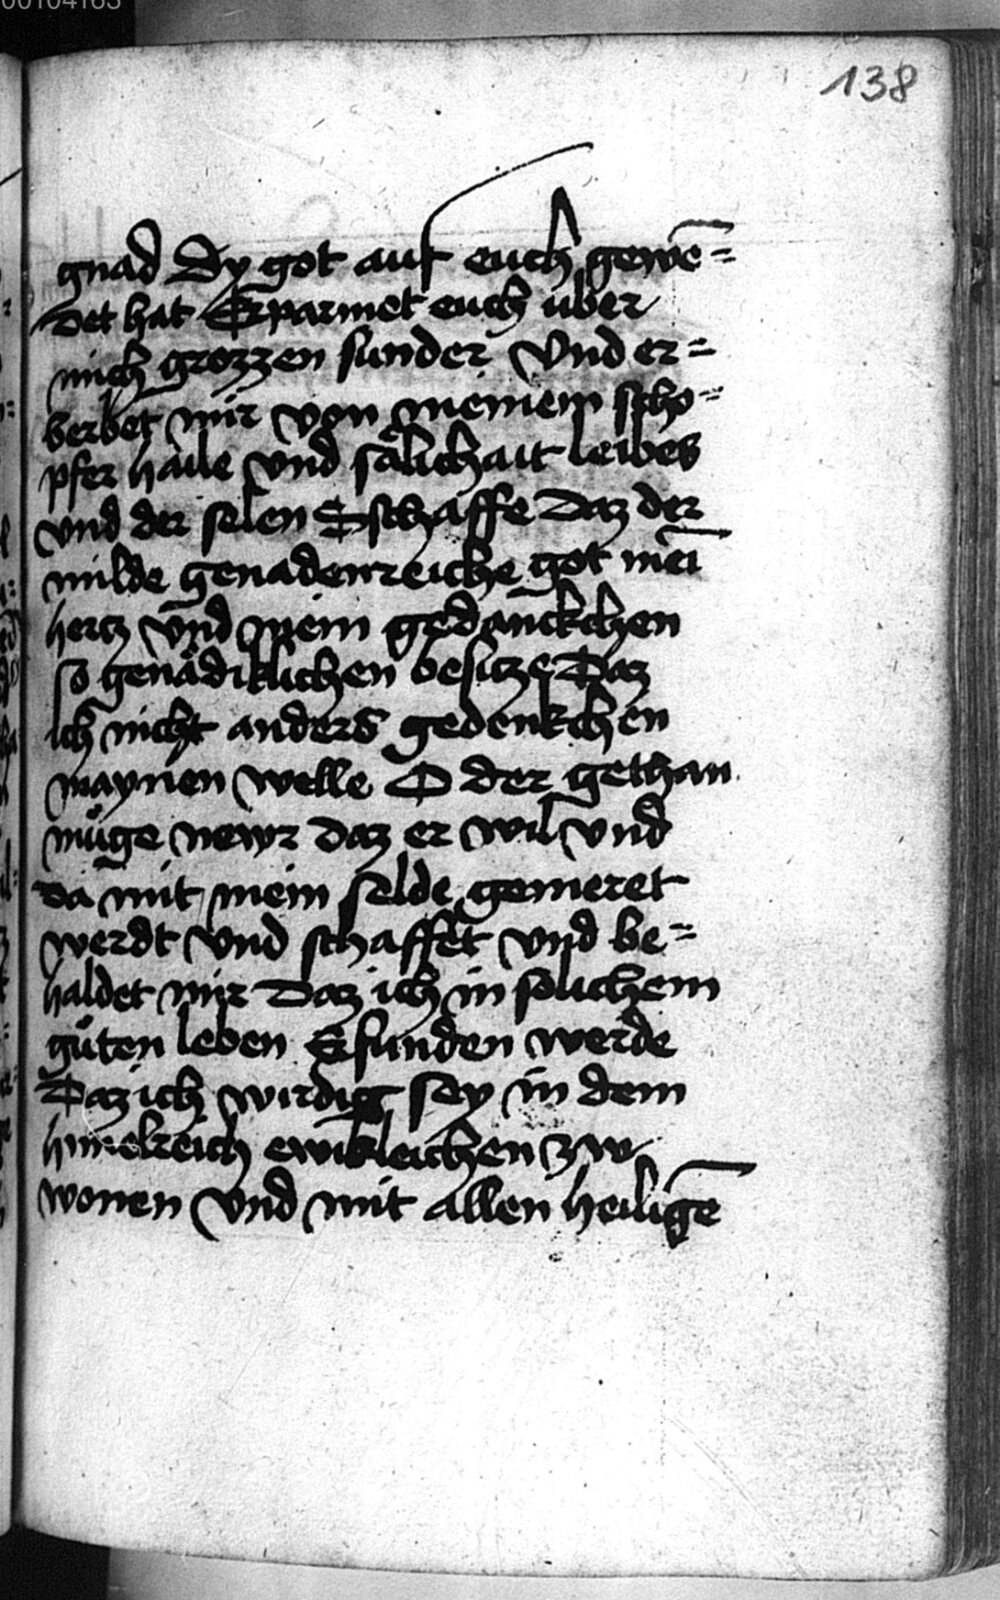 00104163
138
gnad Dy got auf euch gewē=
det hat Erparmet euch uber
mich grozzen sunder Vnd er=
berbet mir von meinem scho=
pfer haile vnd sålichait leibes
vnd der selen Eschaffe Daz der
milde genadenreiche got mei̅
hertz vnd mein gedanckchen
so genådiklichen besitze Daz
ich nicht anders gedenkchen
maynen welle O der gethan
muge newr daz er wil vnd
da mit mein selde gemeret
werdt vnd schaffet vnd be=
haldet mir Daz ich in solichem
guten leben Efunden werde
Daz ich wirdig sey in dem
himelreich ewikleichen zw
wonen Vnd mit allen heiligē